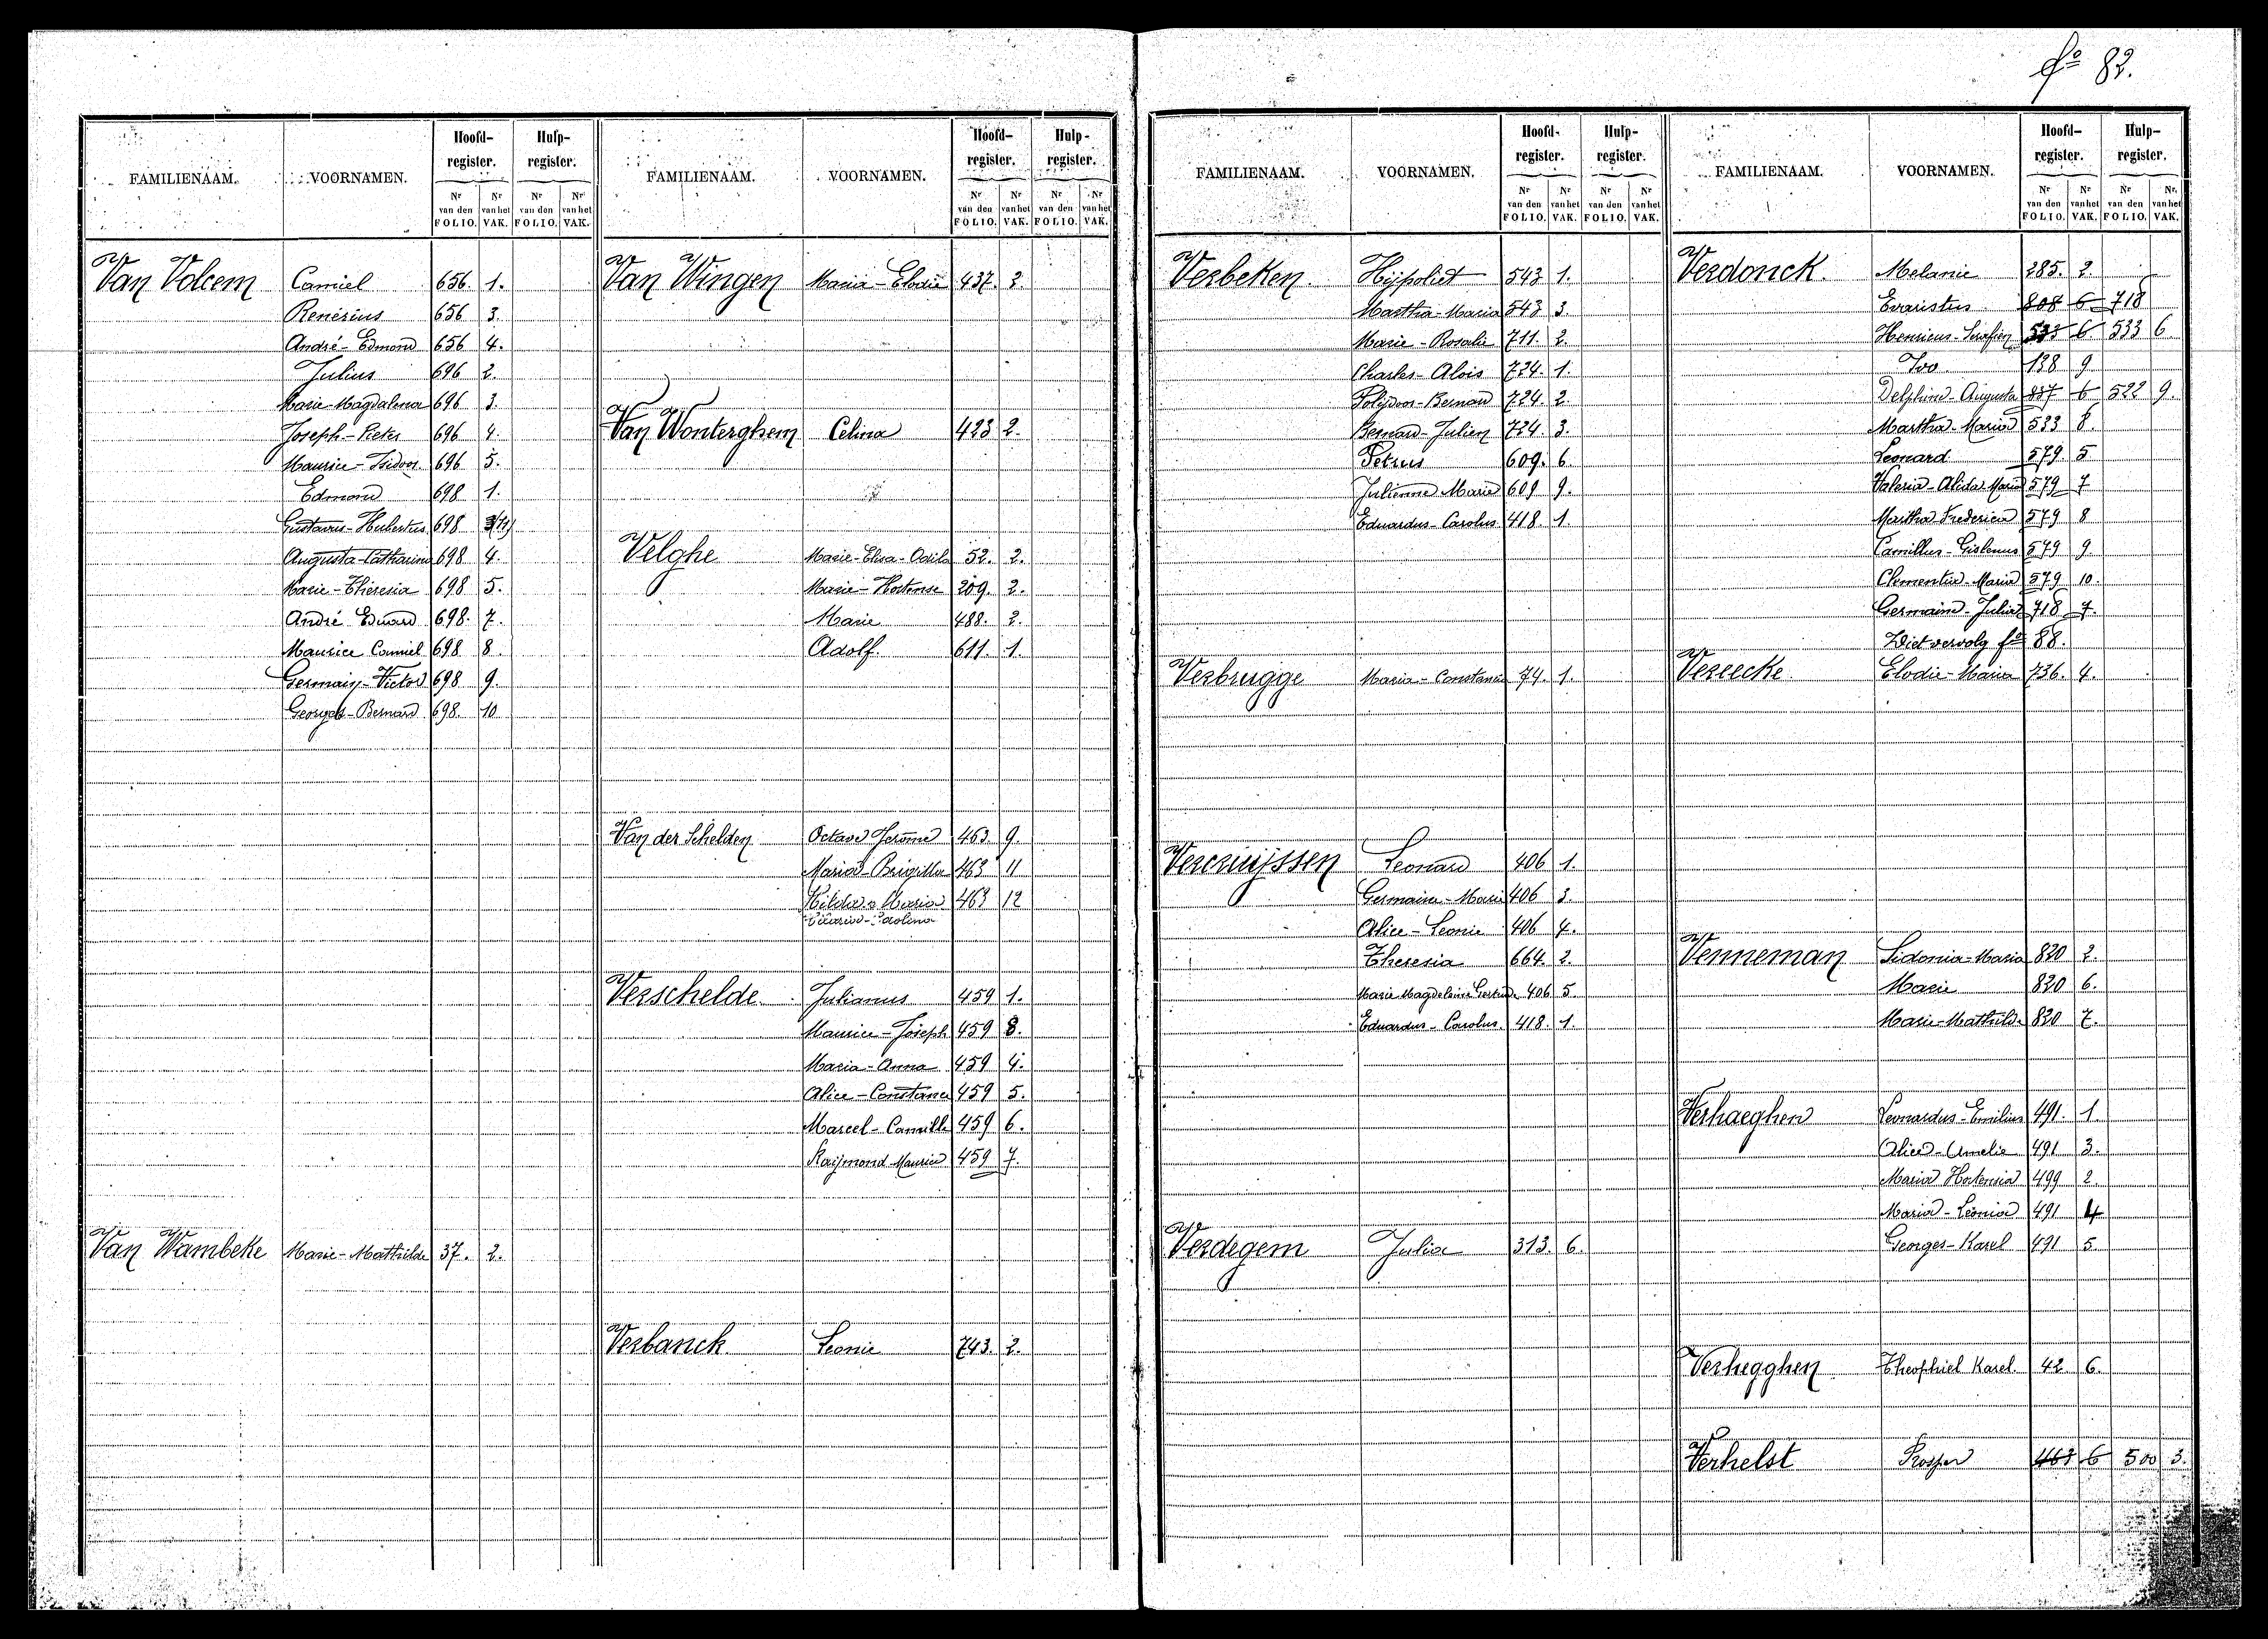 fº 82.
FAMILIENAAM. VOORNAMEN. Hoofd-register. Hulp-register.
Nr van den FOLIO. Nr van het VAK. Nr van den FOLIO. Nr van het VAK.
Van Volcem Camiel 656. 1.
Renérius 656 3.
André-Edmond 656 4.
Julius 696 2.
Marie-Magdalena 696 3.
Joseph-Pieter 696 4.
Maurice-Isidoor 696 5.
Edmond 698 1.
Gustavus-Hubertus 698
Augusta-Catharina 698 4.
Marie-Theresia 698 5.
André Eduard 698. 7.
Maurice Camiel 698 8.
Germain-Victor 698 9.
Georges-Bernard 698. 10
Van Wambeke Marie-Mathilde 37. 2.
FAMILIENAAM. VOORNAMEN. Hoofd-register. Hulp-register.
Nr van den FOLIO. Nr van het VAK. Nr van den FOLIO. Nr van het VAK.
Van Wingen Maria-Elodie 437. 2.
Van Wonterghem Celina 423 2.
Velghe Marie-Elisa-Odila 52. 2.
Marie-Hortense 209. 2.
Marie 488. 2.
Adolf. 611. 1.
Van der Schelden Octave Jerome 463. 9.
Maria-Brigitta 463 11
Hilda Maria 463 12
Verschelde Julianus 459 1.
Maurice-Joseph 459 3.
Maria-Anna 459 4.
Alice-Constance 459 5.
Marcel-Camille 459 6.
Raymond Maurice 459 7.
Verbanck Leonie 743. 2.
FAMILIENAAM. VOORNAMEN. Hoofd-register. Hulp-register.
Nr van den FOLIO. Nr van het VAK. Nr van den FOLIO. Nr van het VAK.
Verbeken. Hijpoliet 543 1.
Martha-Maria 543 3.
Marie-Rosalie 711. 2.
Charles-Alois 724. 1.
Polijdoor-Bernard 724. 2.
Bernard-Julien 724. 3.
Petrus 609. 6.
Julienne Marie 609 9.
Eduardus-Carolus 418. 1.
Verbrugge Maria-Constance 74. 1.
Vercruijssen Leonard 406 1.
Germaine-Marie 406 3.
Alice-Leonie 406 4.
Theresia 664. 2.
Marie Magdeleine Gertrude 406 5.
Eduardus-Carolus 418. 1.
Verdegem Julia 313. 6.
FAMILIENAAM. VOORNAMEN. Hoofd-register. Hulp-register.
Nr van den FOLIO. Nr van het VAK. Nr van den FOLIO. Nr van het VAK.
Verdonck. Melanie 285. 2.
Evaristus 808 6 718
Henricus-Serafien 533 6 533 6
Ivo 138 9
Delphine-Augusta 837 6 522 9.
Martha-Maria 533 8.
Leonard 579. 5
Valeria-Alida Maria 579 7
Martha Frederica 579 8
Camillus-Gislenus 579 9.
Clementia-Maria 579 10.
Germain-Julia 718 7.
Ziet vervolg fº 88.
Vereecke Elodie-Maria 736. 4.
Venneman Sidonia-Maria 820 2.
Marie 820 6.
Marie-Mathilde 820 7.
Verhaeghen Leonardus-Emilius 491. 1
Alice-Amelie 491 3.
Maria Hortensia 499 2.
Maria-Leonia 491 4
Georges-Karel 491 5.
Verhegghen Theophiel Karel. 42. 6.
Verhelst Prosper 463 6 500 3.